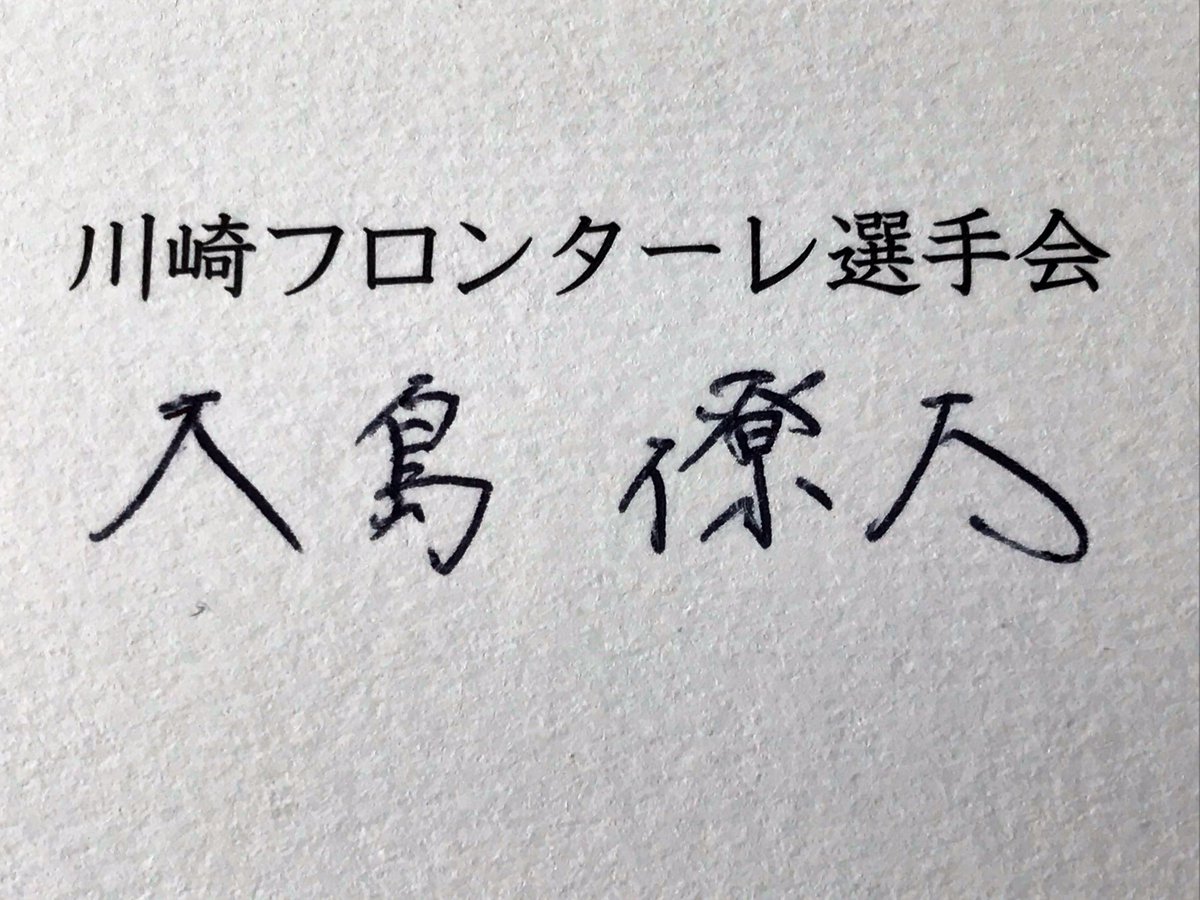 川崎フロンターレ選手会
大島 僚太